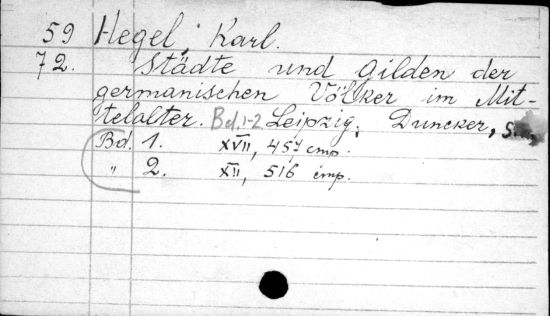 59 Hegel, Karl.
72. Städte und Gilden der
germanischen Völker im Mit-
telalter. Bd.1-2. Leipzig, Duncker,
Bd. 1. XVII, 457 cmp.
" 2. XII, 516 cmp.